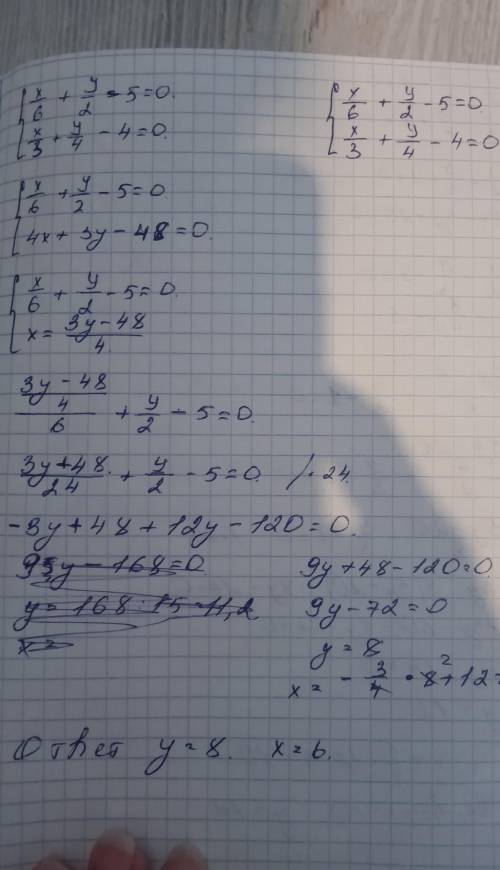 x/6 + y/2 - 5 = 0.
x/3 + y/4 - 4 = 0.
x/6 + y/2 - 5 = 0.
x/3 + y/4 - 4 = 0
x/6 + y/2 - 5 = 0.
4x + 3y - 48 = 0.
x/6 + y/2 - 5 = 0.
x = (3y - 48)/4.
((3y - 48)/4)/6 + y/2 - 5 = 0.
(3y + 48)/24 + y/2 - 5 = 0. / · 24.
-3y + 48 + 12y - 120 = 0.
y - 168 = 0
y = 168 : 15 = 11,2
x =
9y + 48 - 120 = 0.
9y - 72 = 0
y = 8
x = - 3/4 · 8² + 12 =
Ответ y = 8. x = 6.